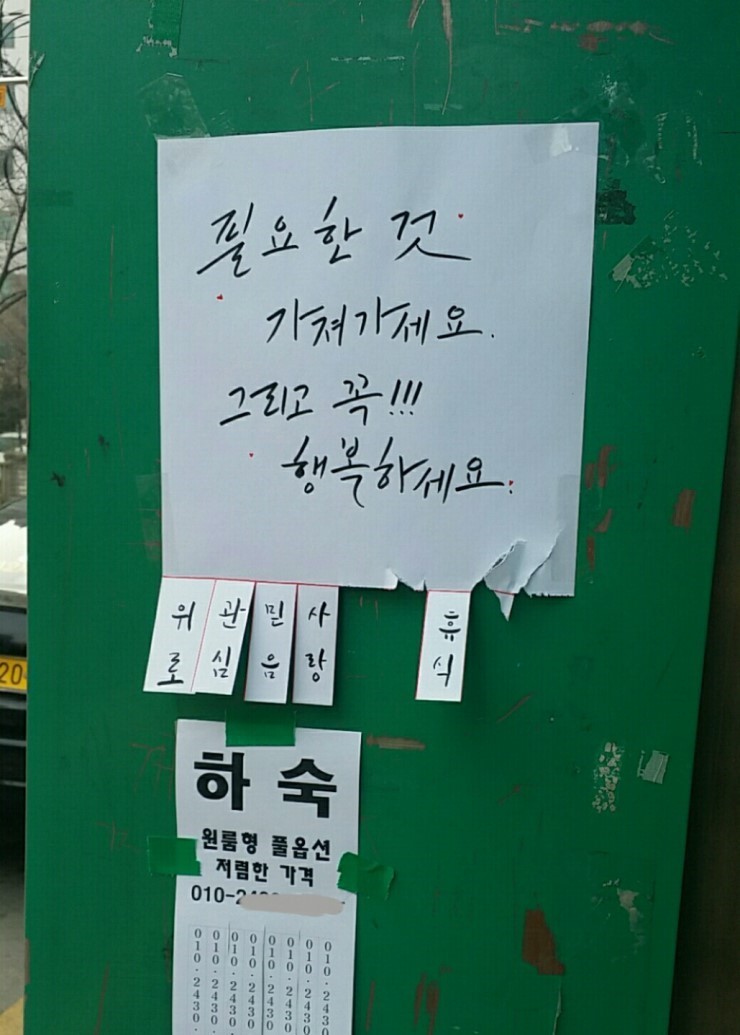 필요한 것
가져가세요.
그리고 꼭!!!
행복하세요.
위로
관심
믿음
사랑
휴식
하숙
원룸형 풀옵션
저렴한 가격
010-2
010·2430
010·2430
010·2430
010·2430
010·2430
010·2430
010·2430
20